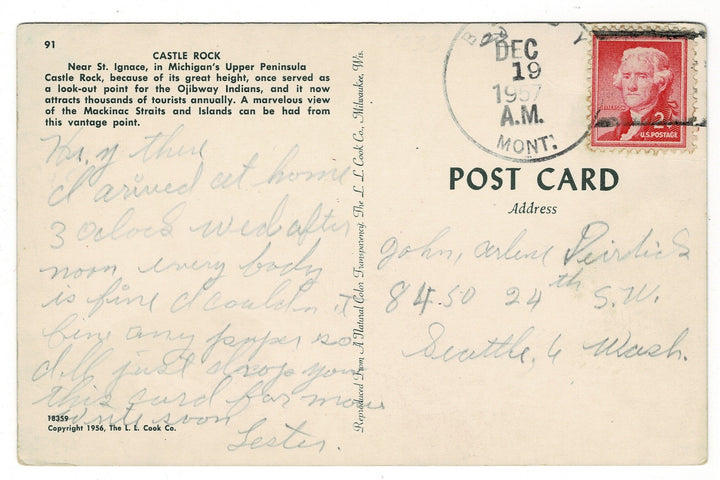 91
CASTLE ROCK
Near St. Ignace, in Michigan's Upper Peninsula
Castle Rock, because of its great height, once served as
a look-out point for the Ojibway Indians, and it now
attracts thousands of tourists annually. A marvelous view
of the Mackinac Straits and Islands can be had from
this vantage point.
Hi. y there
I arived at home
3 oclock wed after
noon every body
is fine I couldn't
fine any paper so
I'll just drop you
this card for now
write soon
Lester.
18359
Copyright 1956, The L. L. Cook Co.
Reproduced From A Natural Color Transparency. The L. L. Cook Co., Milwaukee, Wis.
DEC
19
1957
A.M.
MONT.
2¢
U.S. POSTAGE
POST CARD
Address
John, Arlene
8450 24th S.W.
Seattle, 6 Wash.